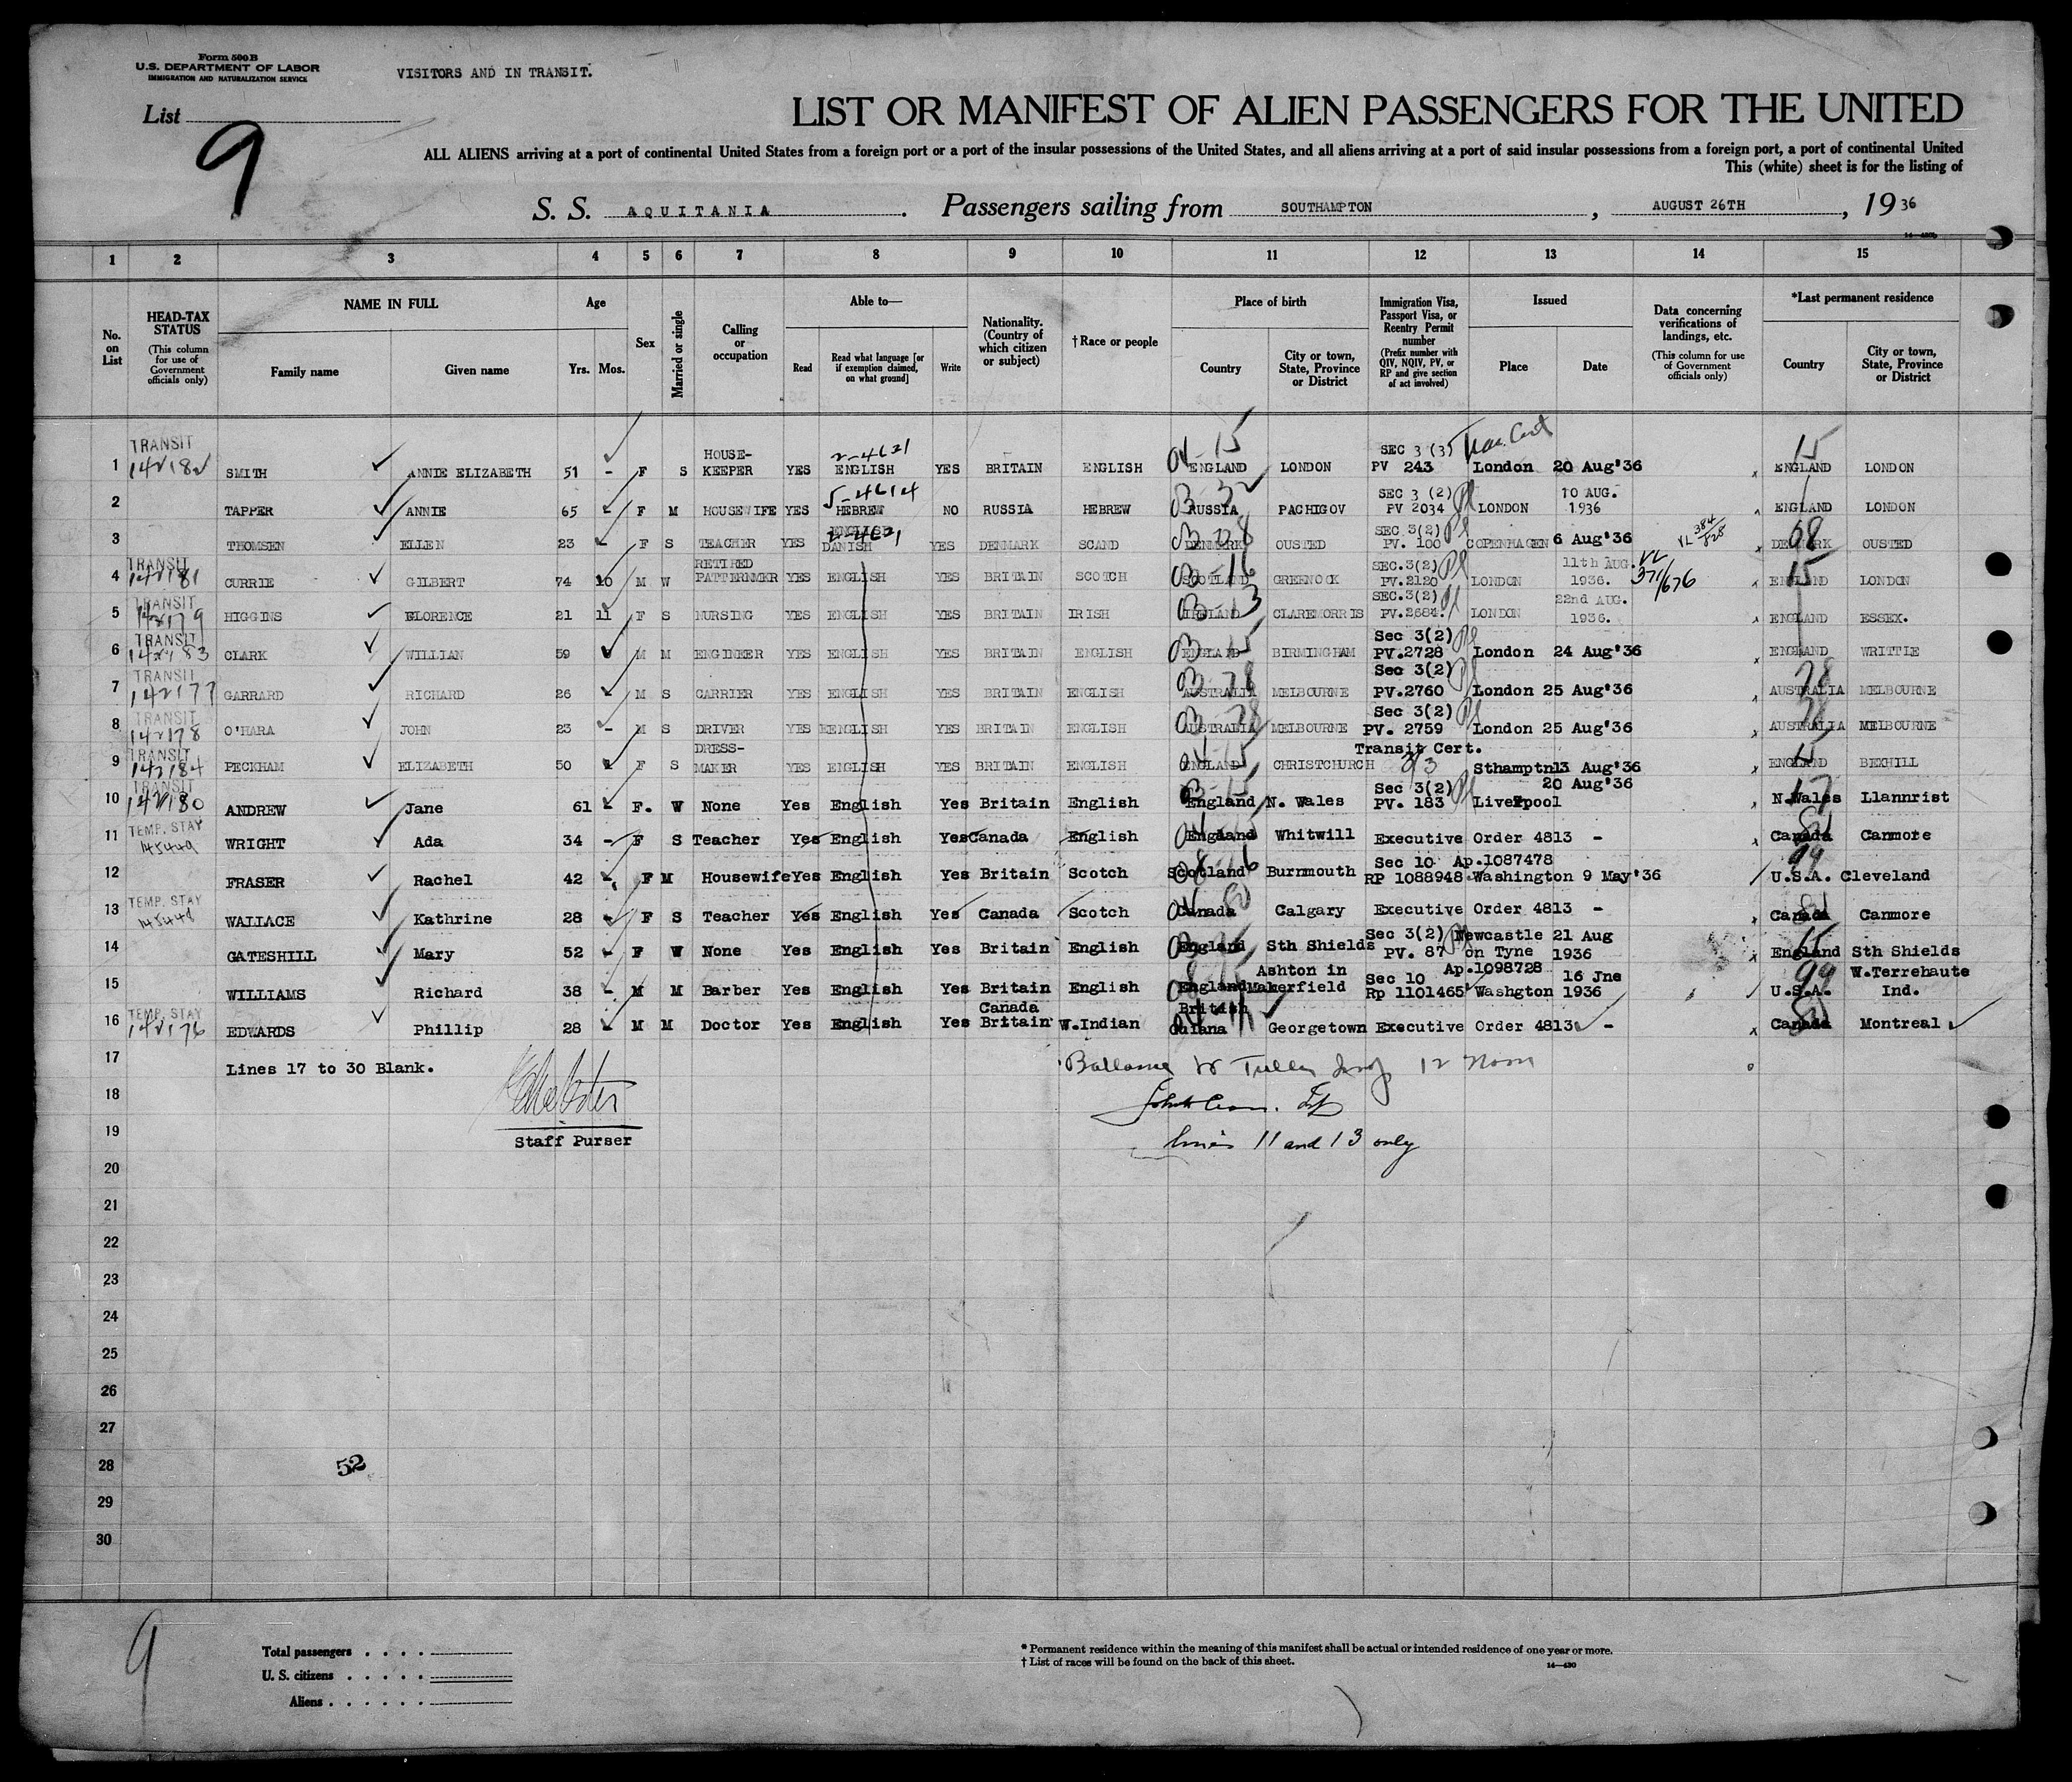 Form 500B
U.S. DEPARTMENT OF LABOR
IMMIGRATION AND NATURALIZATION SERVICE
VISITORS AND IN TRANSIT.
List
9
LIST OR MANIFEST OF ALIEN PASSENGERS FOR THE UNITED
ALL ALIENS arriving at a port of continental United States from a foreign port or a port of the insular possessions of the United States, and all aliens arriving at a port of said insular possessions from a foreign port, a port of continental United
This (white) sheet is for the listing of
S. S. AQUITANIA. Passengers sailing from SOUTHAMPTON, AUGUST 26TH, 1936
1 2 3 4 5 6 7 8 9 10 11 12 13 14 15
No. on List
HEAD-TAX STATUS (This column for use of Government officials only)
NAME IN FULL Family name Given name
Age Yrs. Mos.
Sex
Married or single
Calling or occupation
Able to— Read Read what language [or if exemption claimed, on what ground] Write
Nationality. (Country of which citizen or subject)
†Race or people
Place of birth Country City or town, State, Province or District
Immigration Visa, Passport Visa, or Reentry Permit number (Prefix number with QIV, NQIV, PV, or RP and give section of act involved)
Issued Place Date
Data concerning verifications of landings, etc. (This column for use of Government officials only)
*Last permanent residence Country City or town, State, Province or District
1 TRANSIT 142182 SMITH ANNIE ELIZABETH 51 - F S HOUSE-KEEPER YES 2-4621 ENGLISH YES BRITAIN ENGLISH ENGLAND LONDON SEC 3 (3) PV 243 Tran. Cert London 20 Aug'36 15 ENGLAND LONDON
2 TAPPER ANNIE 65 - F M HOUSEWIFE YES 5-4614 HEBREW NO RUSSIA HEBREW RUSSIA PACHIGOV SEC 3 (2) PV 2034 LONDON 10 AUG. 1936 ENGLAND LONDON
3 THOMSEN ELLEN 23 - F S TEACHER YES ENGLISH 2-4621 DANISH YES DENMARK SCAND DENMARK OUSTED SEC 3(2) PV. 100 COPENHAGEN 6 Aug'36 VL 384/828 DENMARK OUSTED
4 TRANSIT 142181 CURRIE GILBERT 74 10 M W RETIRED PATTERNMKR YES ENGLISH YES BRITAIN SCOTCH SCOTLAND GREENOCK SEC.3(2) PV.2120 LONDON 11th AUG. 1936. VL 371/676 ENGLAND LONDON
5 TRANSIT 142179 HIGGINS FLORENCE 21 11 F S NURSING YES ENGLISH YES BRITAIN IRISH IRELAND CLAREMORRIS SEC.3(2) PV.2684. LONDON 22nd AUG. 1936. ENGLAND ESSEX.
6 TRANSIT 142183 CLARK WILLIAN 59 M M ENGINEER YES ENGLISH YES BRITAIN ENGLISH ENGLAND BIRMINGHAM Sec 3(2) PV.2728 London 24 Aug'36 ENGLAND WRITTLE
7 TRANSIT 142177 GARRARD RICHARD 26 - M S CARRIER YES ENGLISH YES BRITAIN ENGLISH AUSTRALIA MELBOURNE Sec 3(2) PV.2760 London 25 Aug'36 AUSTRALIA MELBOURNE
8 TRANSIT 142178 O'HARA JOHN 23 - M S DRIVER YES ENGLISH YES BRITAIN ENGLISH AUSTRALIA MELBOURNE Sec 3(2) PV. 2759 London 25 Aug'36 AUSTRALIA MELBOURNE
9 TRANSIT 142184 PECKHAM ELIZABETH 50 F S DRESS-MAKER YES ENGLISH YES BRITAIN ENGLISH ENGLAND CHRISTCHURCH Transit Cert. 3/3 Sthamptn 13 Aug'36 ENGLAND BEXHILL
10 TRANSIT 142180 ANDREW Jane 61 - F. W None Yes English Yes Britain English England N. Wales Sec 3(2) PV. 183 Liverpool 20 Aug'36 N.Wales Llannrist
11 TEMP. STAY 145449 WRIGHT Ada 34 - F S Teacher Yes English Yes Canada English England Whitwill Executive Order 4813 - Canada Canmore
12 FRASER Rachel 42 - F M Housewife Yes English Yes Britain Scotch Scotland Burnmouth Sec 10 Ap.1087478 RP 1088948 Washington 9 May'36 U.S.A. Cleveland
13 TEMP. STAY 145448 WALLACE Kathrine 28 - F S Teacher Yes English Yes Canada Scotch Canada Calgary Executive Order 4813 - Canada Canmore
14 GATESHILL Mary 52 - F W None Yes English Yes Britain English England Sth Shields Sec 3(2) PV. 87 Newcastle on Tyne 21 Aug 1936 England Sth Shields
15 WILLIAMS Richard 38 - M M Barber Yes English Yes Britain English England Ashton in Makerfield Sec 10 Ap.1098728 Rp 1101465 Washgton 16 Jne 1936 U.S.A. W.Terrehaute Ind.
16 TEMP STAY 142176 EDWARDS Phillip 28 M M Doctor Yes English Yes Canada Britain W.Indian British Guiana Georgetown Executive Order 4813 - Canada Montreal
17 Lines 17 to 30 Blank. 12 noon
18
19 Staff Purser lines 11 and 13 only
20
21
22
23
24
25
26
27
28 52
29
30
9
Total passengers
U. S. citizens
Aliens
* Permanent residence within the meaning of this manifest shall be actual or intended residence of one year or more.
† List of races will be found on the back of this sheet.
14—430